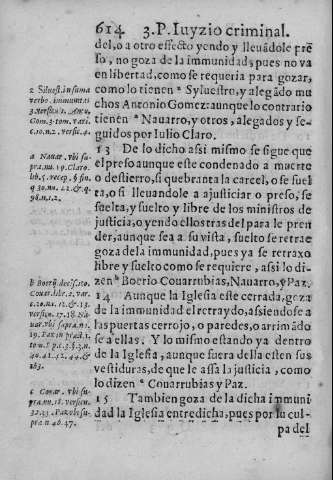 614 3.P. Iuyzio criminal.
del, o a otro effecto yendo y lleuãdole pre
so, no goza de la immunidad, pues no va
en libertad, como se requeria para gozar,
como lo tienen ª Syluestro, y alegãdo mu
chos Antonio Gomez: aunque lo contrario
tienen ª Nauarro, y otros, alegados y se-
guidos por Iulio Claro.
13 De lo dicho assi mismo se sigue que
el preso aunque este condenado a muerte
o destierro, si quebranta la carcel, o se suel
ta, o si lleuandole a ajusticiar o preso, se
suelta, y suelto y libre de los ministros de
justicia, o yendo ellos tras del para le pren
der, aunque sea a su vista, suelto se retrae
goza de la immunidad, pues ya se retraxo
libre y suelto como se requiere, assi lo di-
zen ᵇ Boerio Couarrubias, Nauarro, y Paz.
14 Aunque la Iglesia este cerrada, goza
de la immunidad el retraydo, asiendose a
las puertas cerrojo, o paredes, o arrimãdo
se a ellas. Y lo mismo estando ya dentro
de la Iglesia, aunque fuera della esten sus
vestiduras, de que le assa la justicia, como
lo dizen ª Couarrubias y Paz.
15 Tambien goza de la dicha immuni
dad la Iglesia entredicha, pues por la cul-
pa del
2 Silues. in suma
verbo. immunitas
3. versicu.
Com. 3. tom. vari.
c. 10. n. 2. versic. 4.
a Nauar. vbi su
pra. nu. 19. Claro.
lib. 5. recep. §. fin.
q. 30. nu. 12. & q.
98. n. 12.
b Boerij decis. 110.
Couar. libr. 2. var.
c. 20. nu. 12. & 13.
versicu. 17. 18. Na
uar. vbi supra. nu.
19. Paz in prax. 1.
tom. 5. p. c. 3. §. 3. n.
40. 41. 42. 44. &
163.
c Couar. vbi su-
pra. nu. 18. versicu.
32. 33. Paz vbi su-
pra n 46. 47.